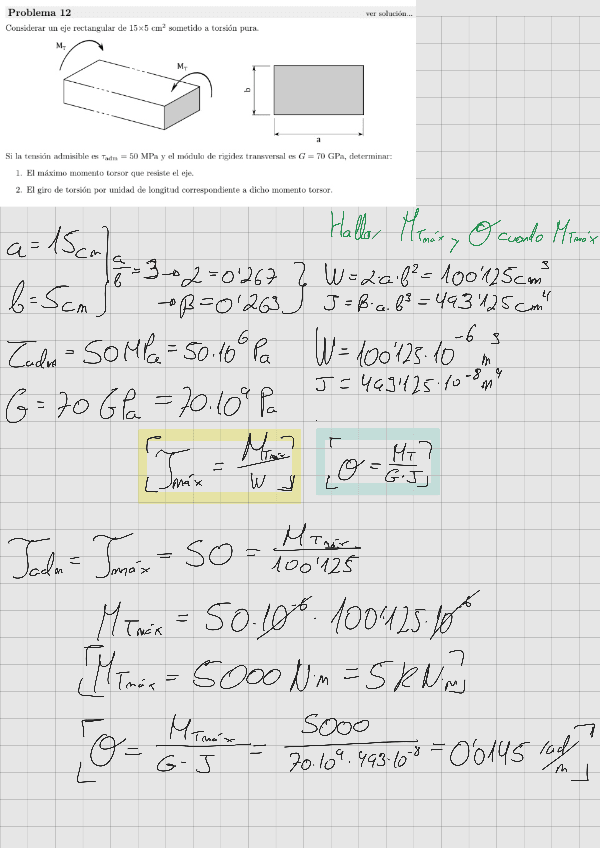 Problema 12 ver solución...
Considerar un eje rectangular de 15×5 cm² sometido a torsión pura.
M_T
M_T
b
a
Si la tensión admisible es τ_adm = 50 MPa y el módulo de rigidez transversal es G = 70 GPa, determinar:
1. El máximo momento torsor que resiste el eje.
2. El giro de torsión por unidad de longitud correspondiente a dicho momento torsor.
Hallar M_Tmáx y θ cuando M_Tmáx
a = 15 cm
b = 5 cm
a/b = 3 → α = 0'267
→ β = 0'263
W = α a · b² = 100'125 cm³
J = β · a · b³ = 493'125 cm⁴
τ_adm = 50 MPa = 50·10⁶ Pa
W = 100'125 · 10⁻⁶ m³
J = 493'125 · 10⁻⁸ m⁴
G = 70 GPa = 70·10⁹ Pa
[τ_máx = M_Tmáx / W]
[θ = M_T / G·J]
τ_adm = τ_máx = 50 = M_Tmáx / 100'125
M_Tmáx = 50·10⁻⁶ · 100'125·10⁶
[M_Tmáx = 5000 N·m = 5 kN·m]
[θ = M_Tmáx / G·J = 5000 / 70·10⁹·493·10⁻⁸ = 0'0145 rad/m]